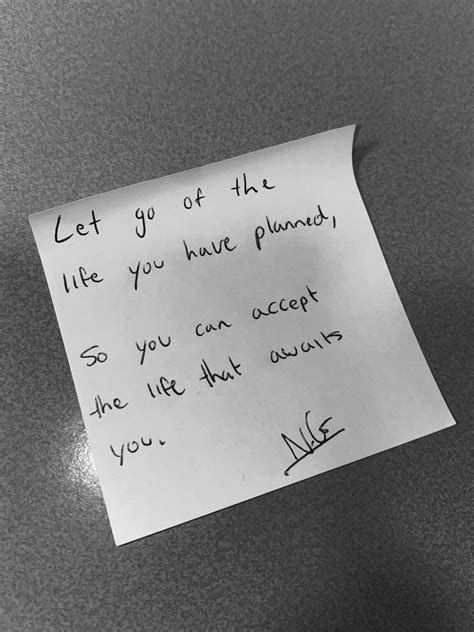 Let go of the
life you have planned,
So you can accept
the life that awaits
you.